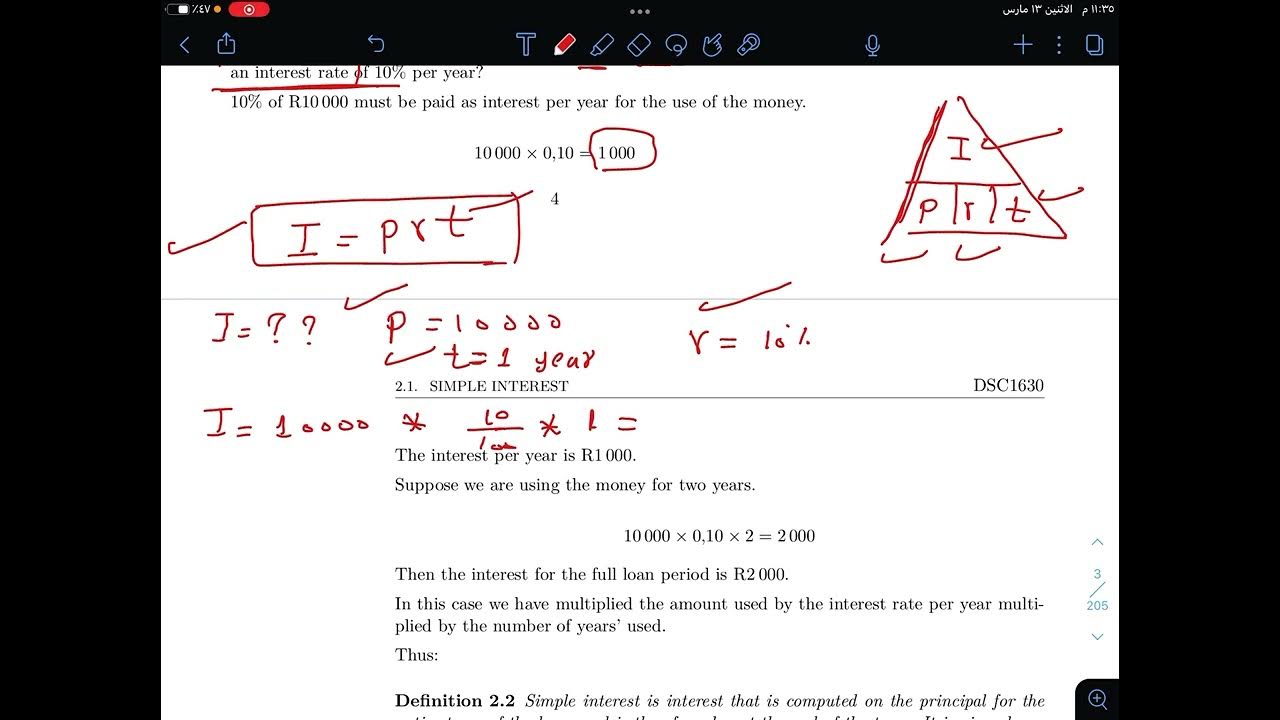 ٪٤٧
١١:٣٥ م الاثنين ١٣ مارس
an interest rate of 10% per year?
10% of R10 000 must be paid as interest per year for the use of the money.
10 000 × 0,10 = 1 000
4
I = P r t
I
P r t
I = ? ?
P = 10000
r = 10%
t = 1 year
2.1. SIMPLE INTEREST DSC1630
I = 10000 * 10/100 * 1 =
The interest per year is R1 000.
Suppose we are using the money for two years.
10 000 × 0,10 × 2 = 2 000
Then the interest for the full loan period is R2 000.
In this case we have multiplied the amount used by the interest rate per year multi-
plied by the number of years' used.
Thus:
3
205
Definition 2.2 Simple interest is interest that is computed on the principal for the